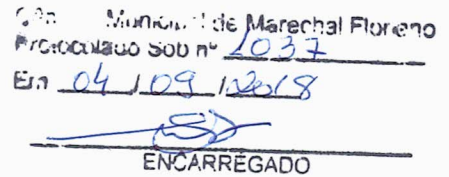 Municipal de Marechal Floriano
Protocolado Sob nº 1037
Em 04 / 09 / 2018
ENCARREGADO